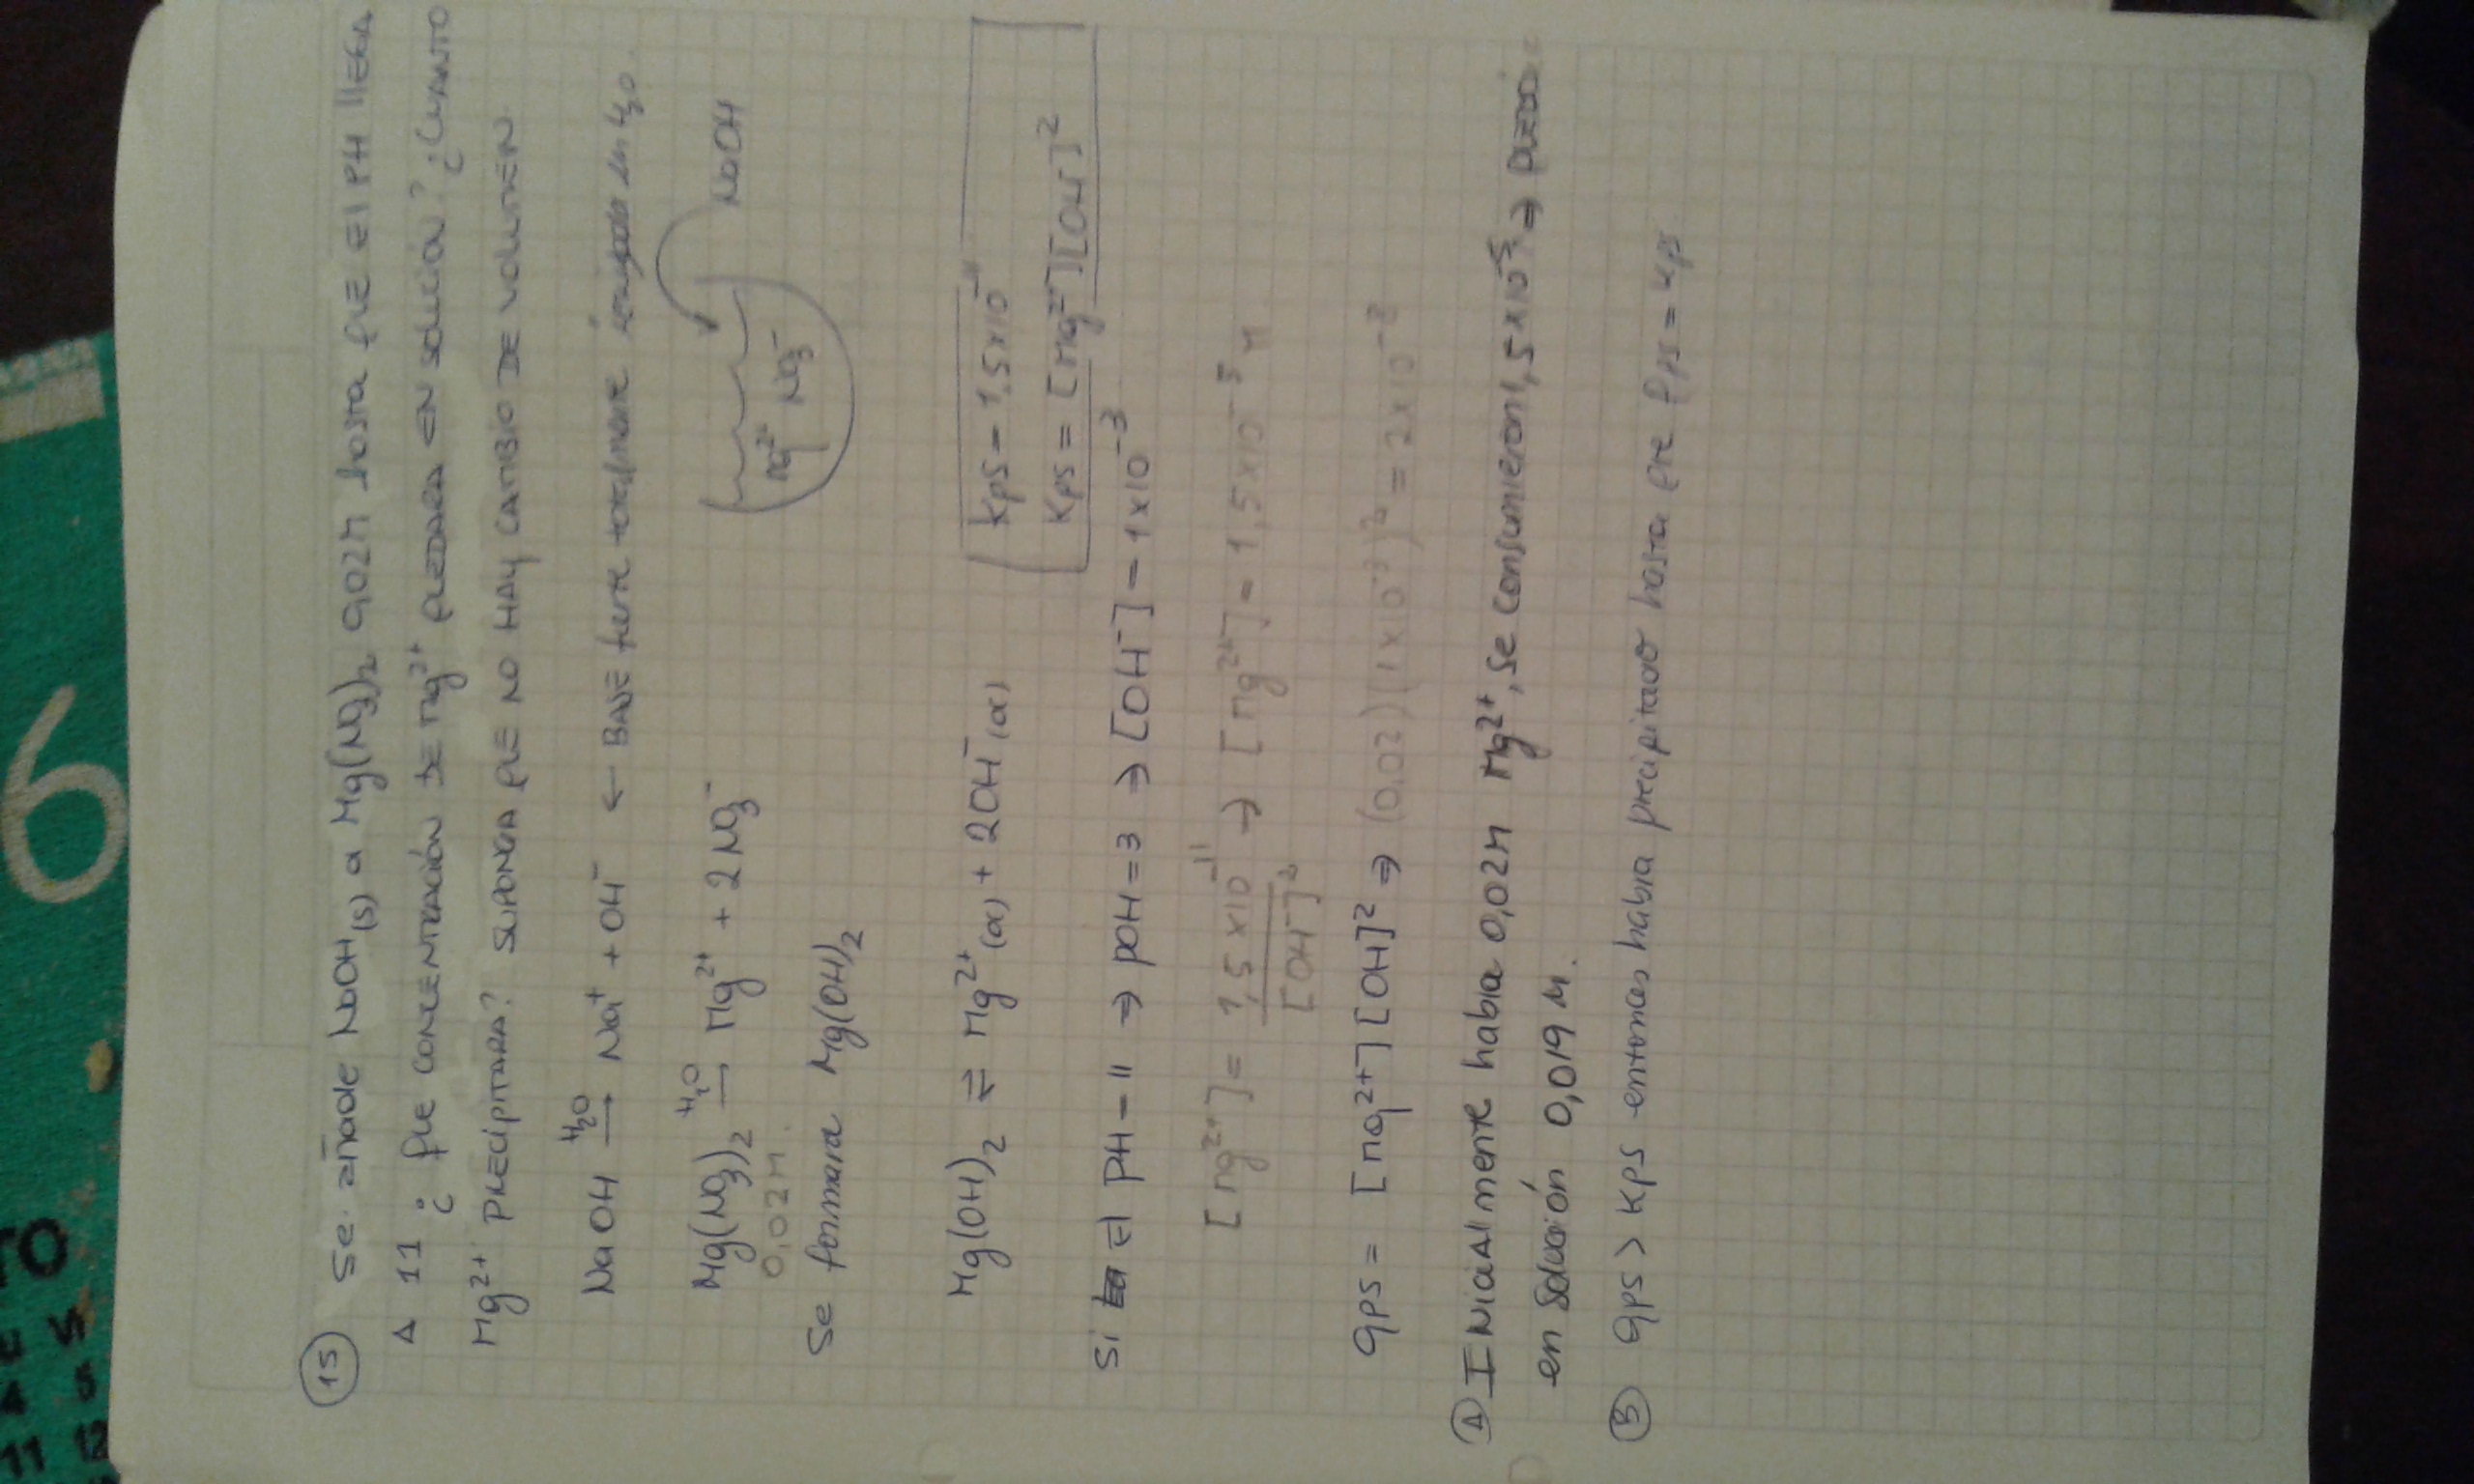 15 Se añade NaOH(s) a Mg(NO3)2 0,02M hasta que el PH llega
A 11 ¿ que concentración de Mg2+ quedara en solucion? ¿Cuanto
Mg2+ precipitara? Suponga que no hay cambio de volumen.
NaOH H2O→ Na+ + OH- ← BASE fuerte totalmente ionizada en H2O.
Mg(NO3)2 H2O→ Mg2+ + 2NO3-
0,02M.
Mg2+ NO3-
NaOH
Se formara Mg(OH)2
Kps = 1,5x10-11
Mg(OH)2 ⇌ Mg2+(ac) + 2OH-(ac)
Kps = [Mg2+][OH-]2
Si el PH = 11 ⇒ pOH = 3 ⇒ [OH-] = 1x10-3
[Mg2+] = 1,5x10-11 / [OH-]2 ⇒ [Mg2+] = 1,5x10-5 M
qps = [Mg2+][OH]2 ⇒ (0,02)(1x10-3)2 = 2x10-8
A INicialmente habia 0,02M Mg2+, se consumieron 1,5x10-5 ⇒
en solución 0,019 M.
B qps > Kps entonces habra precipitado hasta que qps = Kps.
6
TO
4 5
11 12